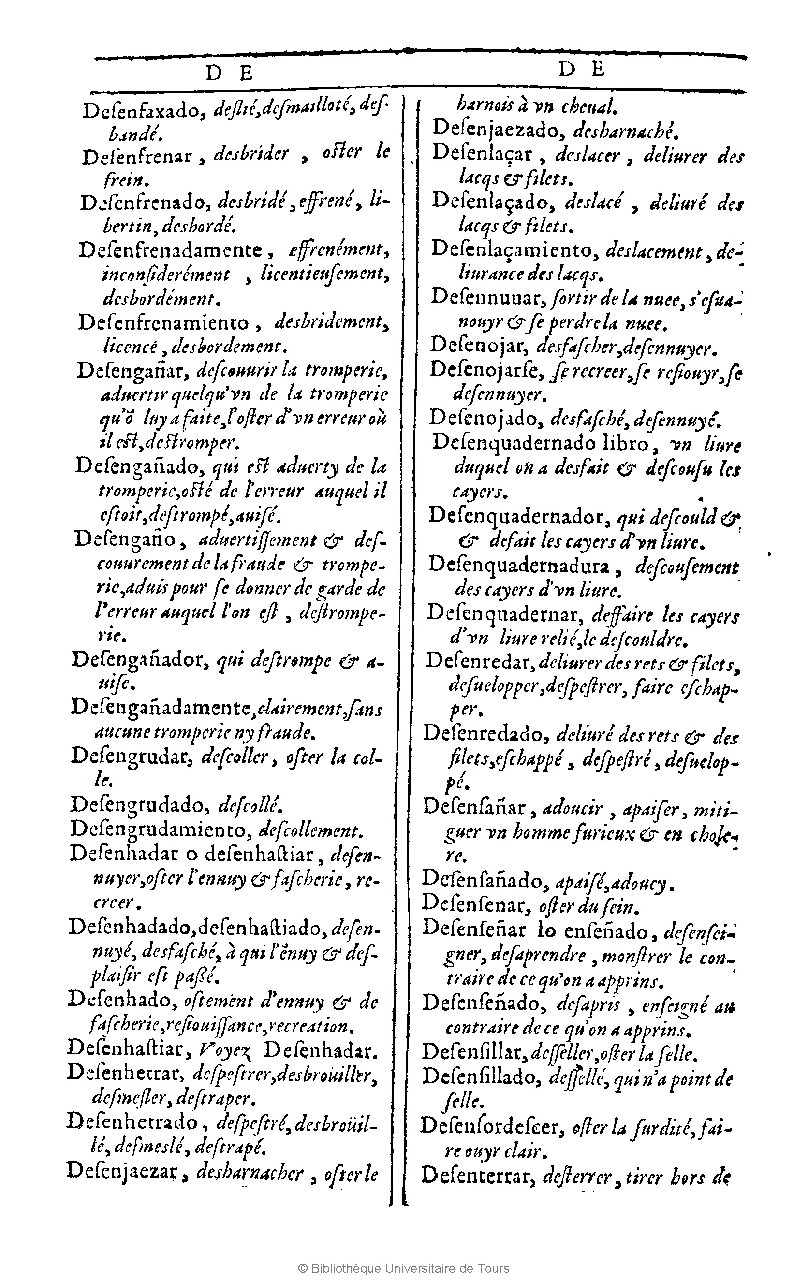 D E
Deſenfaxado, deſlié, deſmailloté, deſ-
bandé.
Deſenfrenar, desbrider, oſter le
frein.
Deſenfrenado, desbridé, effrené, li-
bertin, desbordé.
Deſenfrenadamente, effrenément,
inconſiderément, licentieuſement,
desbordément.
Deſenfrenamiento, desbridement,
licencé, desbordement.
Deſengañar, deſcouurir la tromperie,
aduertir quelqu'vn de la tromperie
qu'õ luy a faite, l'oſter d'vn erreur où
il eſt, deſtromper.
Deſengañado, qui eſt aduerty de la
tromperie, oſté de l'erreur auquel il
eſtoit, deſtrompé, auiſé.
Deſengaño, aduertiſſement & deſ-
couurement de la fraude & trompe-
rie, aduis pour ſe donner de garde de
l'erreur auquel l'on eſt, deſtrompe-
rie.
Deſengañador, qui deſtrompe & a-
uiſe.
Deſengañadamente, clairement, ſans
aucune tromperie ny fraude.
Deſengrudar, deſcoller, oſter la col-
le.
Deſengrudado, deſcollé.
Deſengrudamiento, deſcollement.
Deſenhadar o deſenhaſtiar, deſen-
nuyer, oſter l'ennuy & faſcherie, re-
creer.
Deſenhadado, deſenhaſtiado, deſen-
nuyé, desfaſché, à qui l'ẽnuy & deſ-
plaiſir eſt paßé.
Deſenhado, oſtement d'ennuy & de
faſcherie, reſiouiſſance, recreation.
Deſenhaſtiar, Voyez Deſenhadar.
Deſenhetrar, deſpeſtrer, desbroüiller,
deſmeſler, deſtraper.
Deſenhetrado, deſpeſtré, desbroüil-
lé, deſmeslé, deſtrapé.
Deſenjaezar, desharnacher, oſter le
D E
harnois à vn cheual.
Deſenjaezado, desharnaché.
Deſenlaçar, deslacer, deliurer des
lacqs & filets.
Deſenlaçado, deslacé, deliuré des
lacqs & filets.
Deſenlaçamiento, deslacement, de-
liurance des lacqs.
Deſennuuar, ſortir de la nuee, s'eſua-
nouyr & ſe perdre la nuee.
Deſenojar, desfaſcher, deſennuyer.
Deſenojarſe, ſe recreer, ſe reſiouyr, ſe
deſennuyer.
Deſenojado, desfaſché, deſennuyé.
Deſenquadernado libro, vn liure
duquel on a desfait & deſcouſu les
cayers.
Deſenquadernador, qui deſcould &
& defait les cayers d'vn liure.
Deſenquadernadura, deſcouſement
des cayers d'vn liure.
Deſenquadernar, deffaire les cayers
d'vn liure relié, le deſcouldre.
Deſenredar, deliurer des rets & filets,
deſuelopper, deſpeſtrer, faire eſchap-
per.
Deſenredado, deliuré des rets & des
filets, eſchappé, deſpeſtré, deſuelop-
pé.
Deſenſañar, adoucir, apaiſer, miti-
guer vn homme furieux & en chole-
re.
Deſenſañado, apaiſé, adoucy.
Deſenſenar, oſter du ſein.
Deſenſeñar lo enſeñado, deſenſei-
gner, deſaprendre, monſtrer le con-
traire de ce qu'on a apprins.
Deſenſeñado, deſapris, enſeigné au
contraire de ce qu'on a apprins.
Deſenſillar, deſſeller, oſter la ſelle.
Deſenſillado, deſſellé, qui n'a point de
ſelle.
Deſenſordeſcer, oſter la ſurdité, fai-
re ouyr clair.
Deſenterrar, deſterrer, tirer hors de
© Bibliothèque Universitaire de Tours